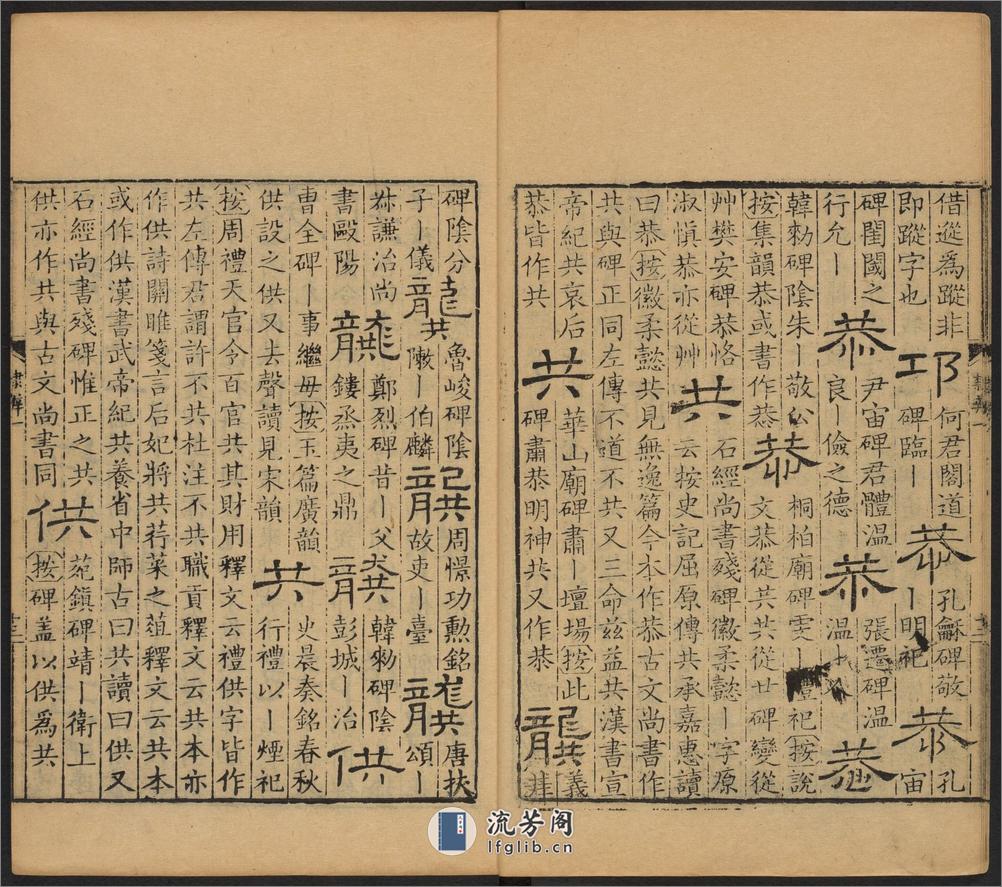 借蹤為蹤非
即蹤字也
邛
何君閣道
碑臨丨
恭
孔龢碑敬
丨明祀
恭
孔
宙
碑閨閫之
行允丨
恭
尹宙碑君體温
良丨儉之德
恭
張遷碑温
温
恭
韓勑碑陰朱丨敬公
按集韻恭或書作㳟
㳟
桐柏廟碑雯丨禮祀按說
文恭從共從廿碑變從
艸樊安碑恭恪
淑慎恭亦從艸
共
石經尚書殘碑徽柔懿丨字原
云按史記屈原傳共承嘉惠讀
曰恭按徽柔懿共見無逸篇今本作恭古文尚書作
共與碑正同左傳不道不共又三命兹益共漢書宣
帝紀共哀后
恭皆作共
共
華山廟碑肅丨壇場按此
碑肅恭明神共又作恭
龔
義
井
碑陰分
子丨儀
龔
魯峻碑陰
敶丨伯麟
龔
周憬功勳銘
故吏丨臺
龔
唐扶
頌丨
叅謙治尚
書歐陽
龔
鄭烈碑昔丨父
鏤烝夷之鼎
龔
韓勑碑陰
彭城丨治
供
曹全碑丨事繼母按玉篇廣韻
供設之供又去聲讀見宋韻
共
史晨奏銘春秋
行禮以丨煙祀
按周禮天官令百官共其財用釋文云禮供字皆作
共左傳君謂許不共杜注不共職貢釋文云共本亦
作供詩關睢箋言后妃將共荇菜之葅釋文云共本
或作供漢書武帝紀共養省中師古曰共讀曰供又
石經尚書殘碑惟正之共
供亦作共與古文尚書同
供
苑鎮碑靖丨衛上
按碑蓋以供為共
流芳阁
lfglib.cn